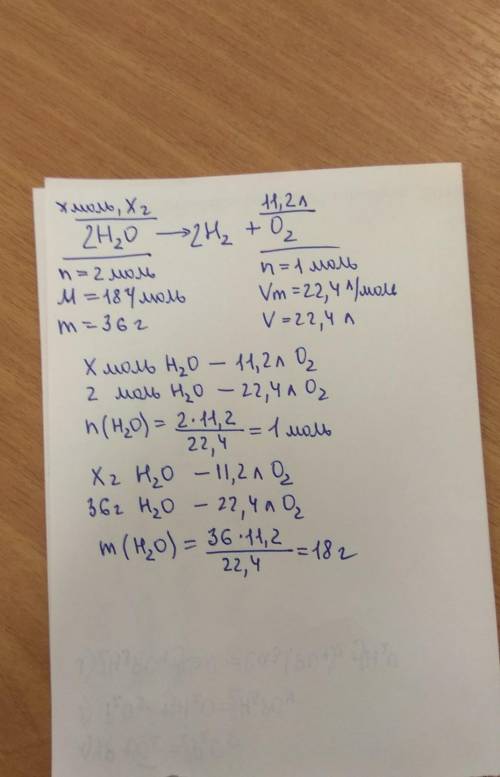 x моль, x г 11,2 л
2H₂O → 2H₂ + O₂
n = 2 моль n = 1 моль
M = 18 г/моль Vm = 22,4 л/моль
m = 36 г V = 22,4 л
X моль H₂O – 11,2 л O₂
2 моль H₂O – 22,4 л O₂
n(H₂O) = 2·11,2 / 22,4 = 1 моль
Xг H₂O – 11,2 л O₂
36г H₂O – 22,4 л O₂
m(H₂O) = 36·11,2 / 22,4 = 18 г